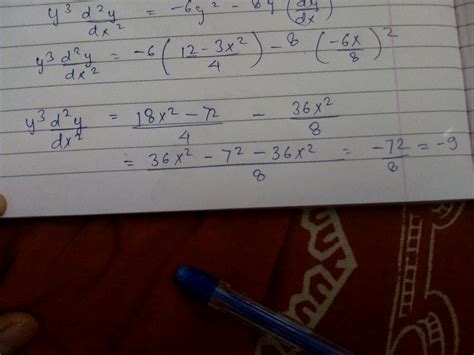 y³ d²y/dx² = -6y² - 8y (dy/dx)
y³ d²y/dx² = -6 ( 12-3x²/4 ) - 8 ( -6x/8 )²
y³ d²y/dx² = 18x² - 72/4 - 36x²/8
= 36x² - 7² - 36x²/8 = -72/8 = -9